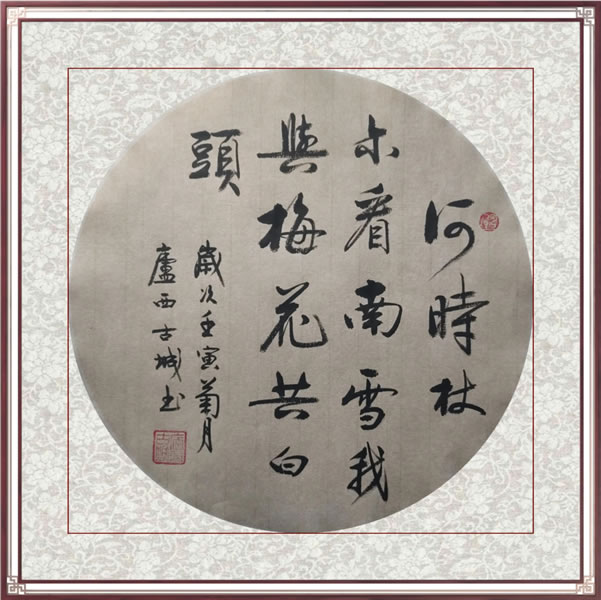 何時杖
尔看南雪我
與梅花共白
頭
歲次壬寅菊月
廬西古城书